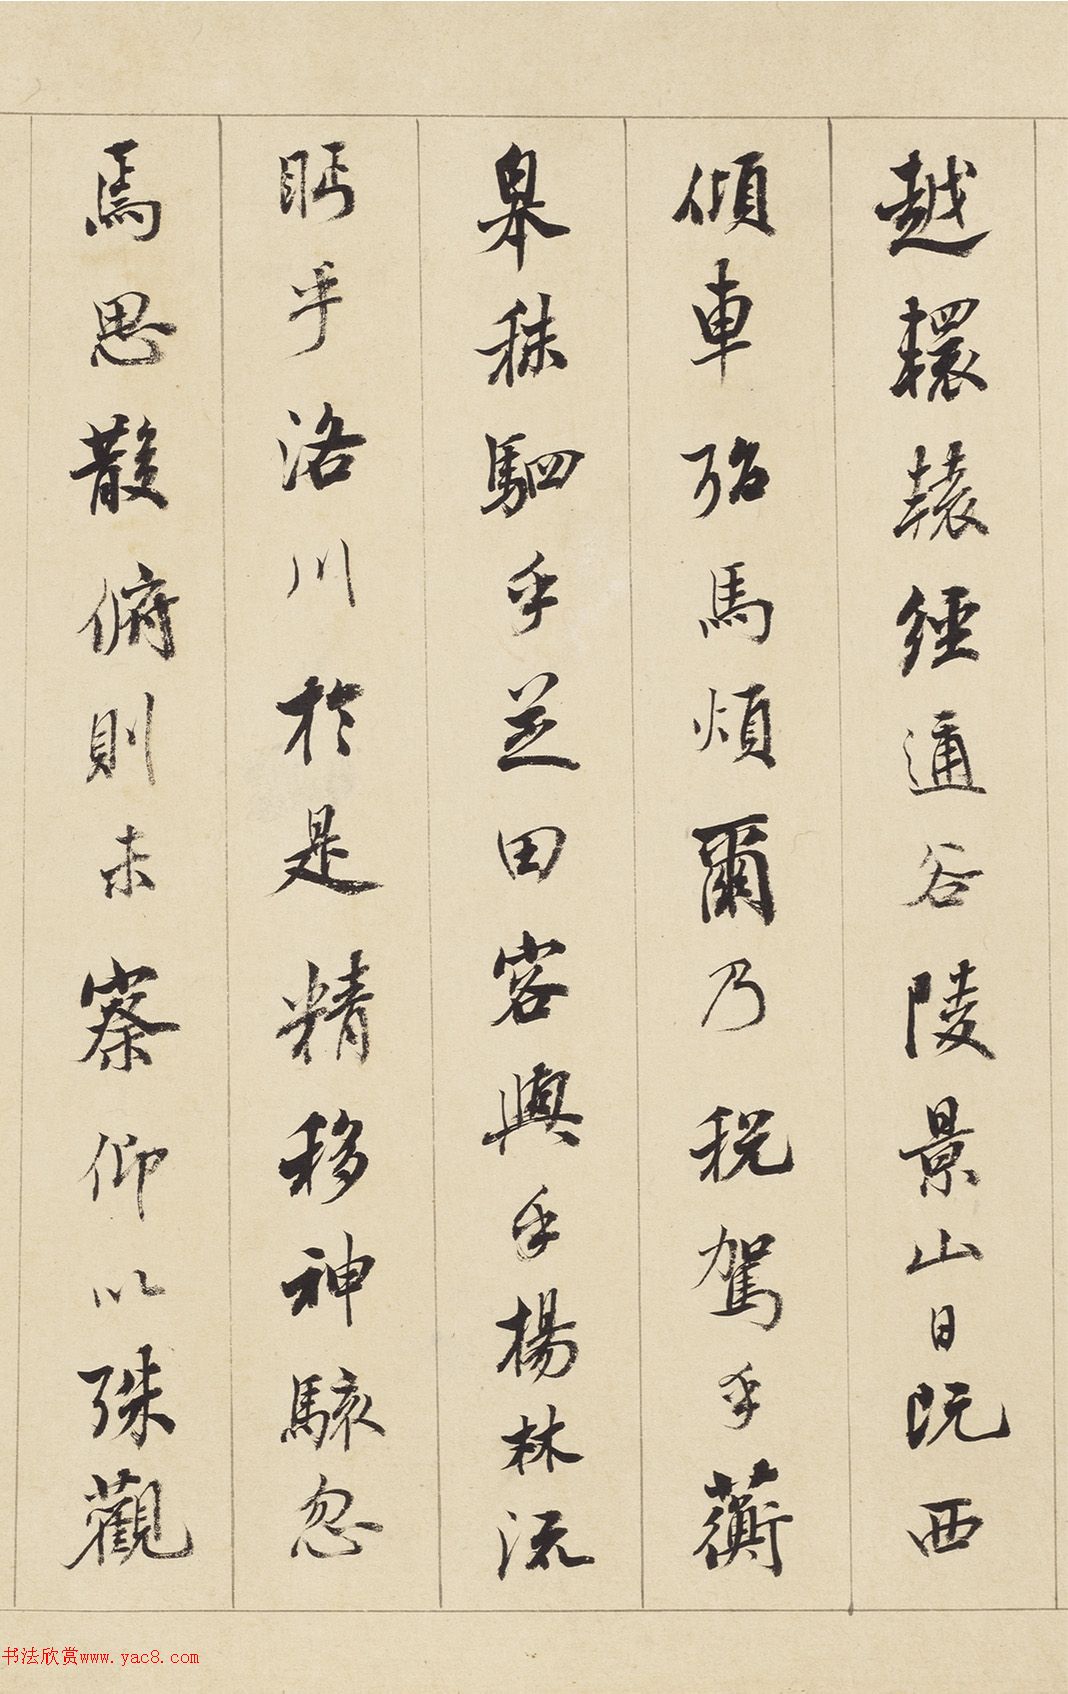 越轘轅經通谷陵景山日既西
傾車殆馬煩爾乃稅駕乎蘅
皋秣駟乎芝田容與乎楊林流
眄乎洛川於是精移神駭忽
焉思散俯則未察仰以殊觀
书法欣赏www.yac8.com